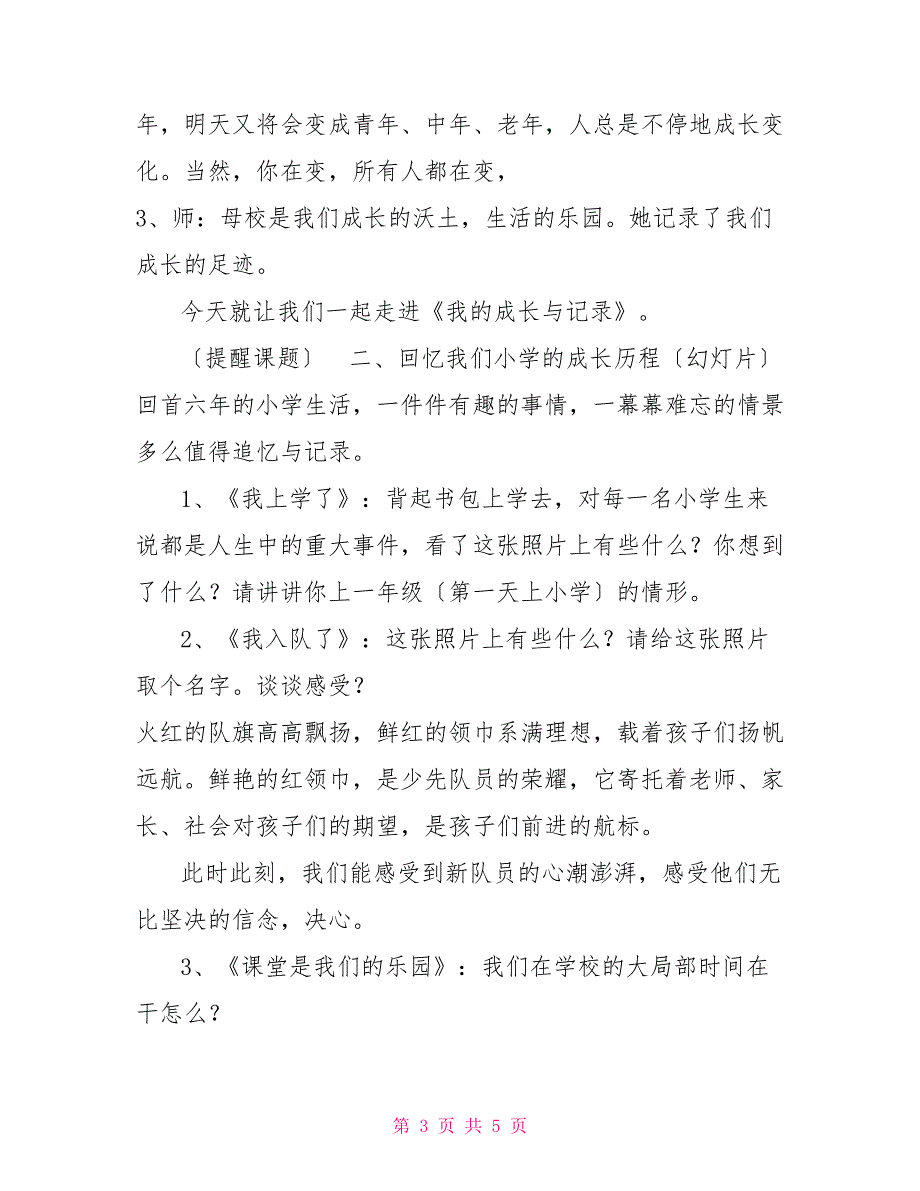 年，明天又将会变成青年、中年、老年，人总是不停地成长变
化。当然，你在变，所有人都在变，
3、师：母校是我们成长的沃土，生活的乐园。她记录了我们
成长的足迹。
今天就让我们一起走进《我的成长与记录》。
〔提醒课题〕　二、回忆我们小学的成长历程〔幻灯片〕
回首六年的小学生活，一件件有趣的事情，一幕幕难忘的情景
多么值得追忆与记录。
1、《我上学了》：背起书包上学去，对每一名小学生来
说都是人生中的重大事件，看了这张照片上有些什么？你想到
了什么？请讲讲你上一年级〔第一天上小学〕的情形。
2、《我入队了》：这张照片上有些什么？请给这张照片
取个名字。谈谈感受？
火红的队旗高高飘扬，鲜红的领巾系满理想，载着孩子们扬帆
远航。鲜艳的红领巾，是少先队员的荣耀，它寄托着老师、家
长、社会对孩子们的期望，是孩子们前进的航标。
此时此刻，我们能感受到新队员的心潮澎湃，感受他们无
比坚决的信念，决心。
3、《课堂是我们的乐园》：我们在学校的大局部时间在
干怎么？
第 3 页 共 5 页